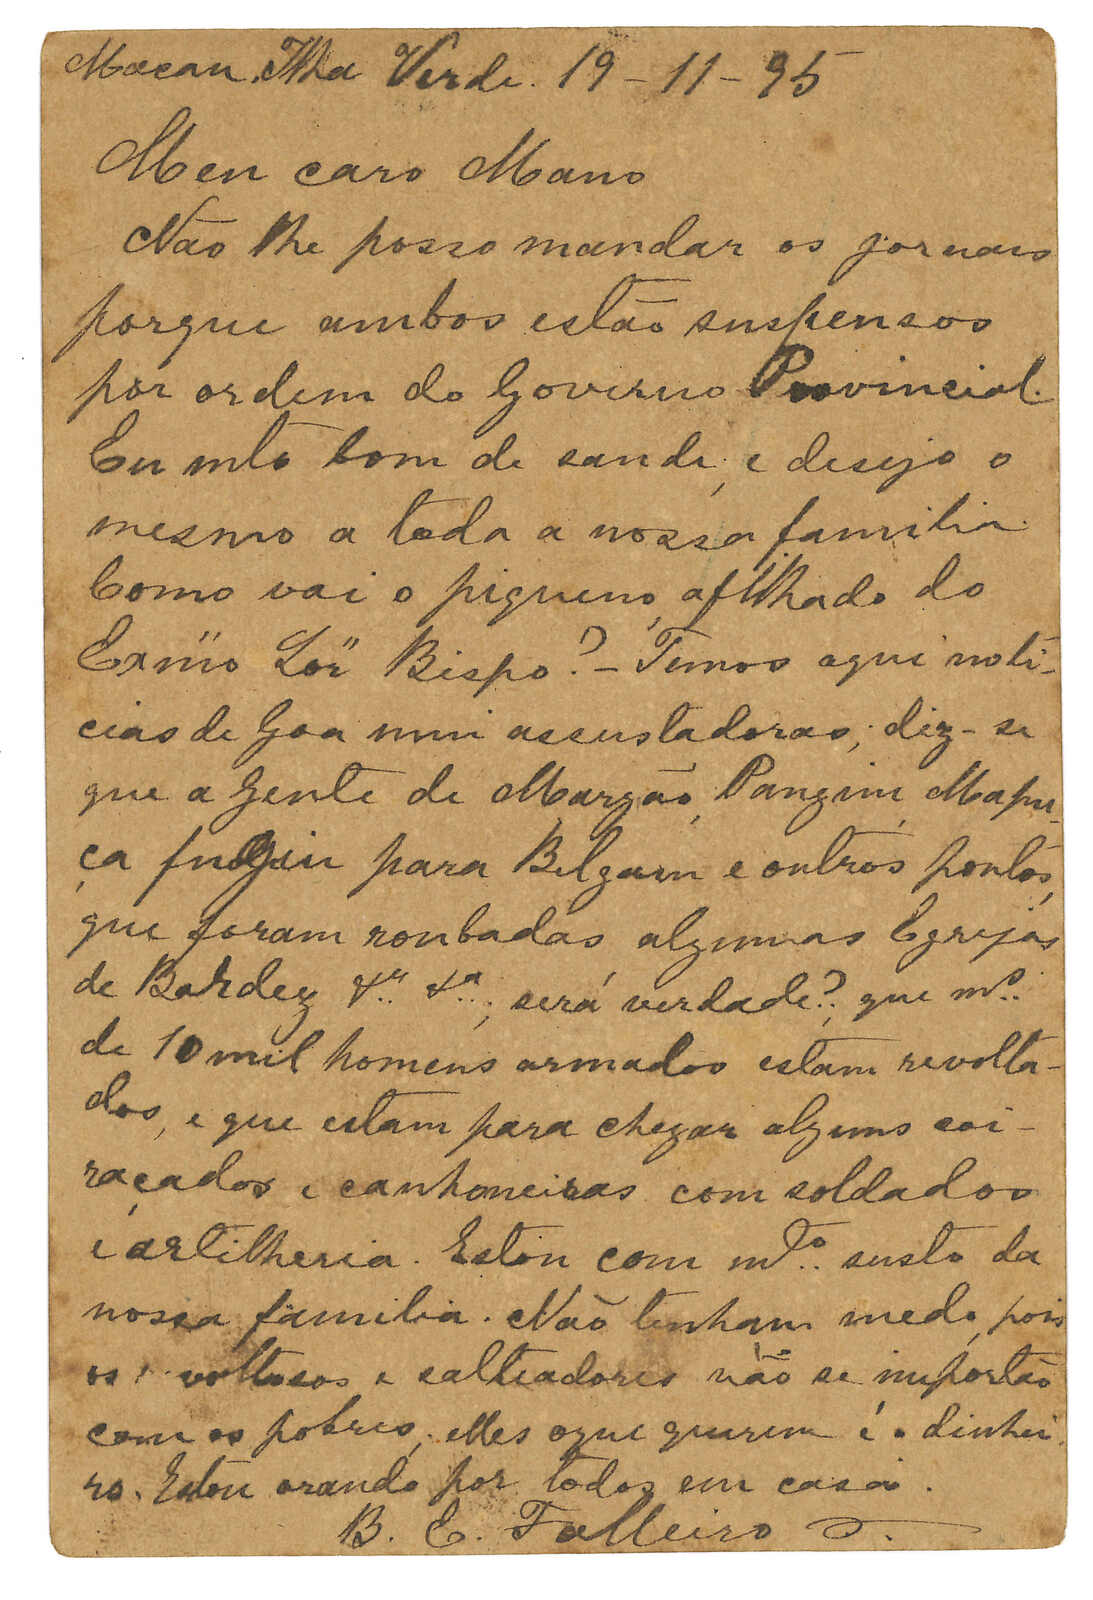 Macau, Ilha Verde. 19-11-95
Meu caro Mano
Não lhe posso mandar os jornaes
porque ambos estão suspensos
por ordem do Governo Provincial.
Eu mto bom de saude, e desejo o
mesmo a toda a nossa familia.
Como vai o piqueno, afilhado do
Exmo Sor Bispo? - Temos aqui noti-
cias de Goa mui assustadoras; diz-se
que a Gente de Margão, Pangim, Mapu-
ça fugiu para Belgam e outros pontos,
que foram roubadas algumas Egrejas
de Bardez &a. &a.; será verdade?; que ms.
de 10 mil homens armados estam revolta-
dos, e que estam para chegar alguns coi-
raçados e canhoneiras com soldados
e artilheria. Estou com mto. susto da
nossa familia. Não tenham medo, pois
os revoltosos e salteadores não se importão
com os pobres, elles oque querem é o dinhei-
ro. Estou orando por todos em casa.
B. E. Falleiro